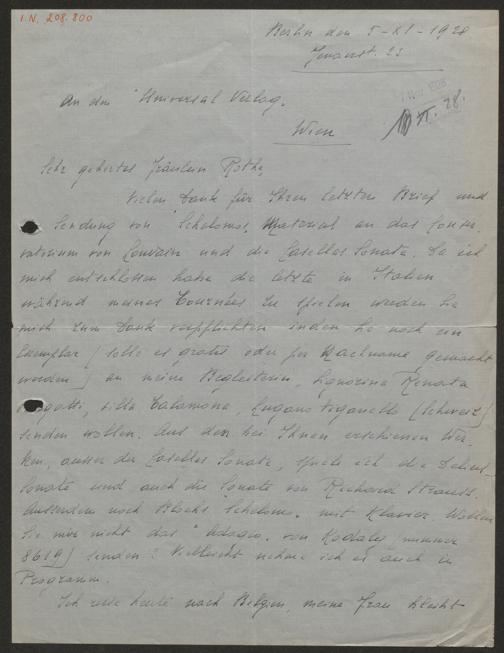 I.N. 208.800
Berlin den 5-XI-1928
Jenaerst. 23
An den "Universal Verlag.
Wien
10/XI. 28.
Sehr geehrtes Fräulein Rothe,
Vielen Dank für Ihren letzten Brief und
Sendung von "Schelomo" Material an das Conser-
vatorium von Louvain und die Casellas Sonate. Da ich
mich entschlossen habe die letzte in Italien
während meines Tournées zu spielen werden Sie
mich zum Dank verpflichten indem Sie noch ein
Exemplar (solle es gratis oder per Nachname gemacht
werden) an meine Begleiterin, Signorina Renata
Borgatti, Villa Calamona, Lugano Viganello (Schweiz)
senden wollen. Aus den bei Ihnen erschienen Wer-
ken, ausser der Casellas Sonate, spiele ich die Delius
Sonate und auch die Sonate von Richard Strauss.
Ausserdem noch Blochs "Schelomo" mit Klavier. Wollen
Sie mir nicht das "Adagio" von Kodaly (nummer
8619) senden? Vielleicht nehme ich es auch in
Programm.
Ich reise heute nach Belgien, meine Frau bleibt